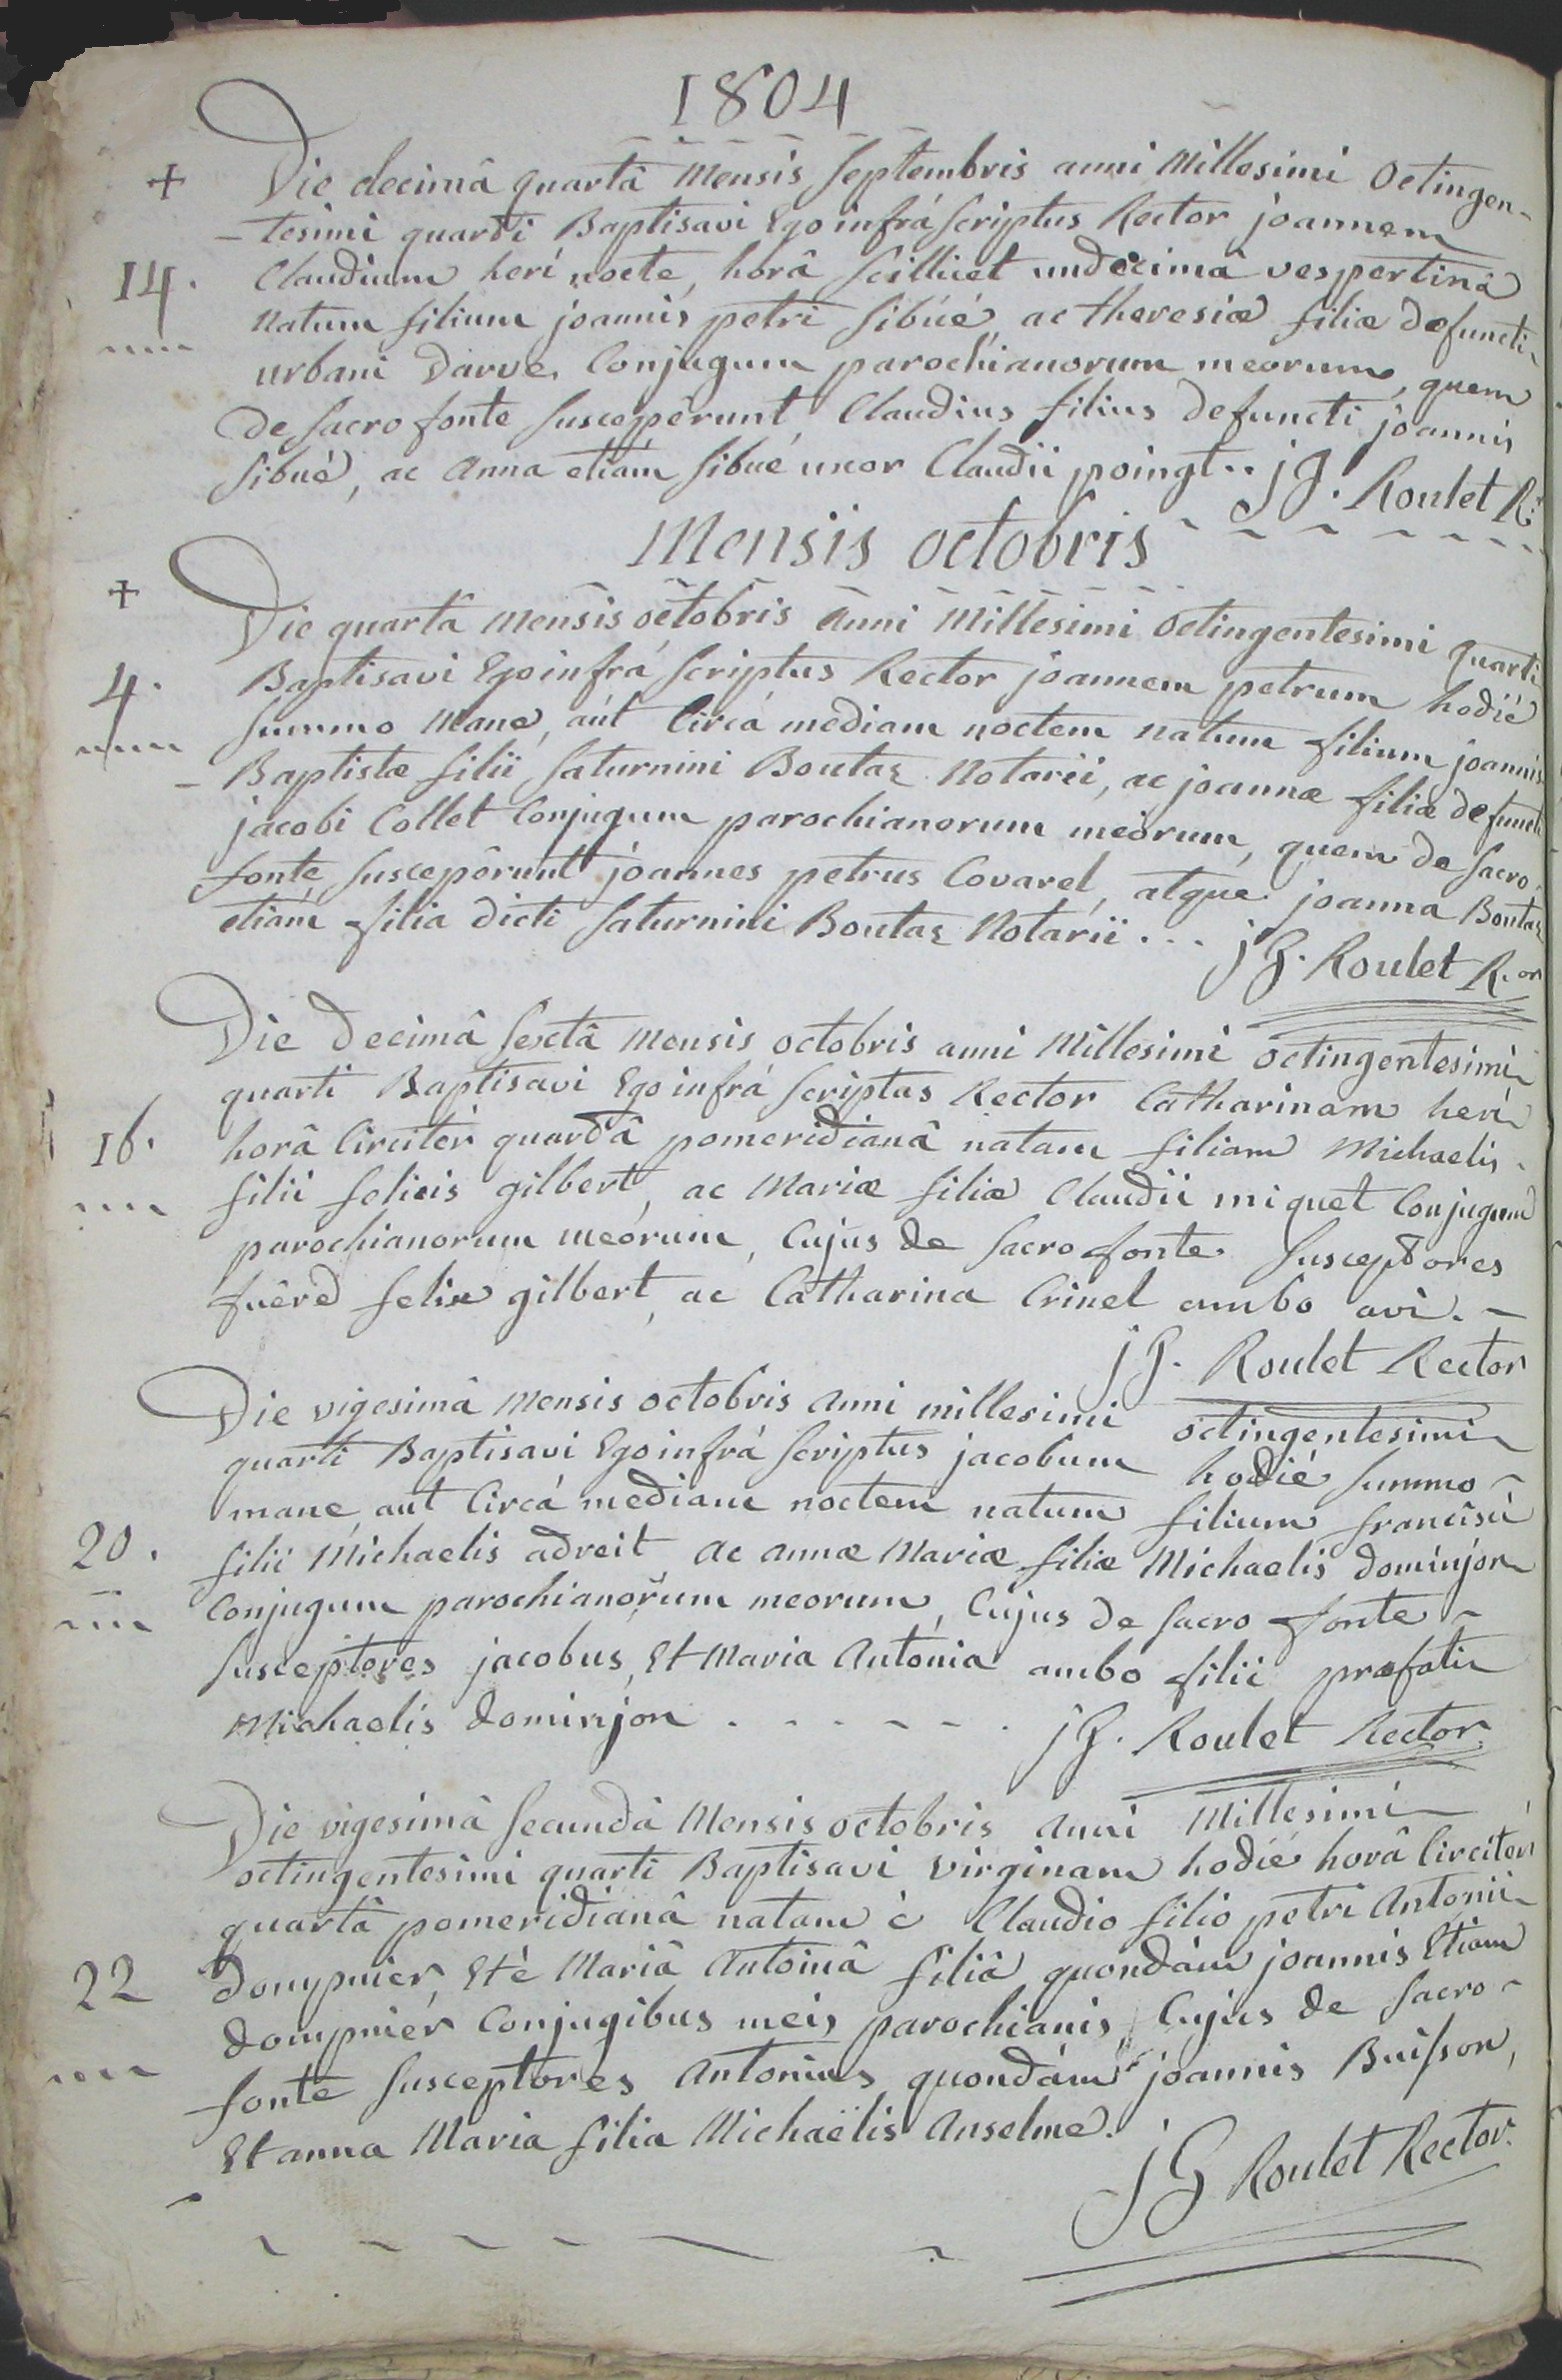 1804
+ Die decimâ quartâ Mensis Septembris anni Millesimi Octingen-
-tesimi quarti Baptisavi Ego infrá Scriptus Rector joannem
14. Claudium herí nocte, horâ Scillicet undecimâ vespertinâ
natum filium joannis petri Sibúé, ac theresiæ filiæ defuncti
urbani Darve Conjugum parochianorum meorum, quem
de Sacro fonte Suscepêrunt Claudius filius defuncti joannis
Sibué, ac Anna etiám Sibué uxor Claudii poingt.. jg. Roulet R.r
Mensis octobris
+ Die quartâ Mensis octobris Anni Millesimi Octingentesimi quarti
4. Baptisavi Ego infrá Scriptus Rector joannem petrum hodié
Summo Mane, aút Circá mediam noctem natum filium joannis
- Baptistæ filii Saturnini Boutaz Notarii, ac joannæ filiæ defuncti
jacobi Collet Conjugum parochianorum meórum, quem de Sacro
fonte Suscepêrunt joannes petrus Covarel, atque joanna Boutaz
etiám filia dicti Saturnini Boutaz Notárii... jg. Roulet R.or
Die decimâ Sextâ Mensis octobris anni Millesimi octingentesimi
quarti Baptisavi Ego infrá Scriptus Rector Catharinam herí
16. horâ Circitér quartâ pomeridianâ natam filiam Michaelis
filii felicis gilbert, ac Mariæ filiæ Claudii miquet Conjugum
parochianorum meórum, Cujus de Sacro fonte Susceptores
fuêre felix gilbert, ac Catharina Crinel ambo avi. -
jg. Roulet Rector
Die vigesimâ Mensis octobris Anni millesimi octingentesimi
quarti Baptisavi Ego infrá Scriptus jacobum hodié Summo
mane, aut Circá mediam noctem natum filium francisci
20. filii Michaelis adreit ac annæ Mariæ filiæ Michaelis dominjon
Conjugum parochianorum meorum, Cujus de Sacro fonte
Susceptores jacobus, Et Maria Antónia ambo filii præfati
Michaelis dominjon . - - - - - . jg. Roulet Rector
Die vigesimâ Secundâ Mensis octobris Anni Millesimi
octingentesimi quarti Baptisavi virginam hodié horâ Circiter
quartâ pomeridianâ natam è Claudio filio petri Antonii
22 dompnier, Et è Mariâ Antoniâ filiâ quondám joannis Etiam
dompnier Conjugibus meis parochianis, Cujus de Sacro
fonte Susceptores Antonius quondám joannis Buisson,
Et anna Maria filia Michaëlis Anselme.
jg Roulet Rector.